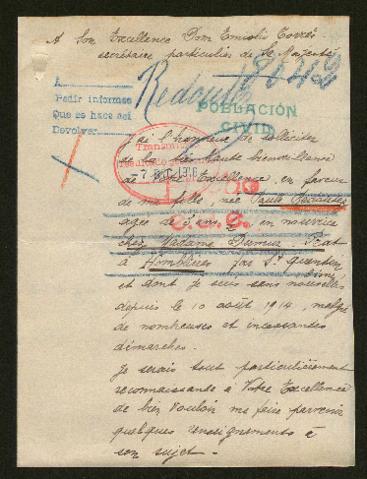 A Son Excellence Dom Emilio Torrès
secrétaire particulier de Sa Majesté
A
Pedir informes
Que se hace así
Devolver
POBLACIÓN
CIVIL
J'ai l'honneur de solliciter
la bien haute bienveillance
de Votre Excellence, en faveur
de ma fille, née Paule
âgée de 3 ans, en nourrice
chez Madame Prat
à Homblières par St Quentin
et dont je suis sans nouvelles
depuis le 10 août 1914, malgré
de nombreuses et incessantes
démarches.
Je serais tout particulièrement
reconnaissante à Votre Excellence
de bien vouloir me faire parvenir
quelques renseignements à
son sujet.